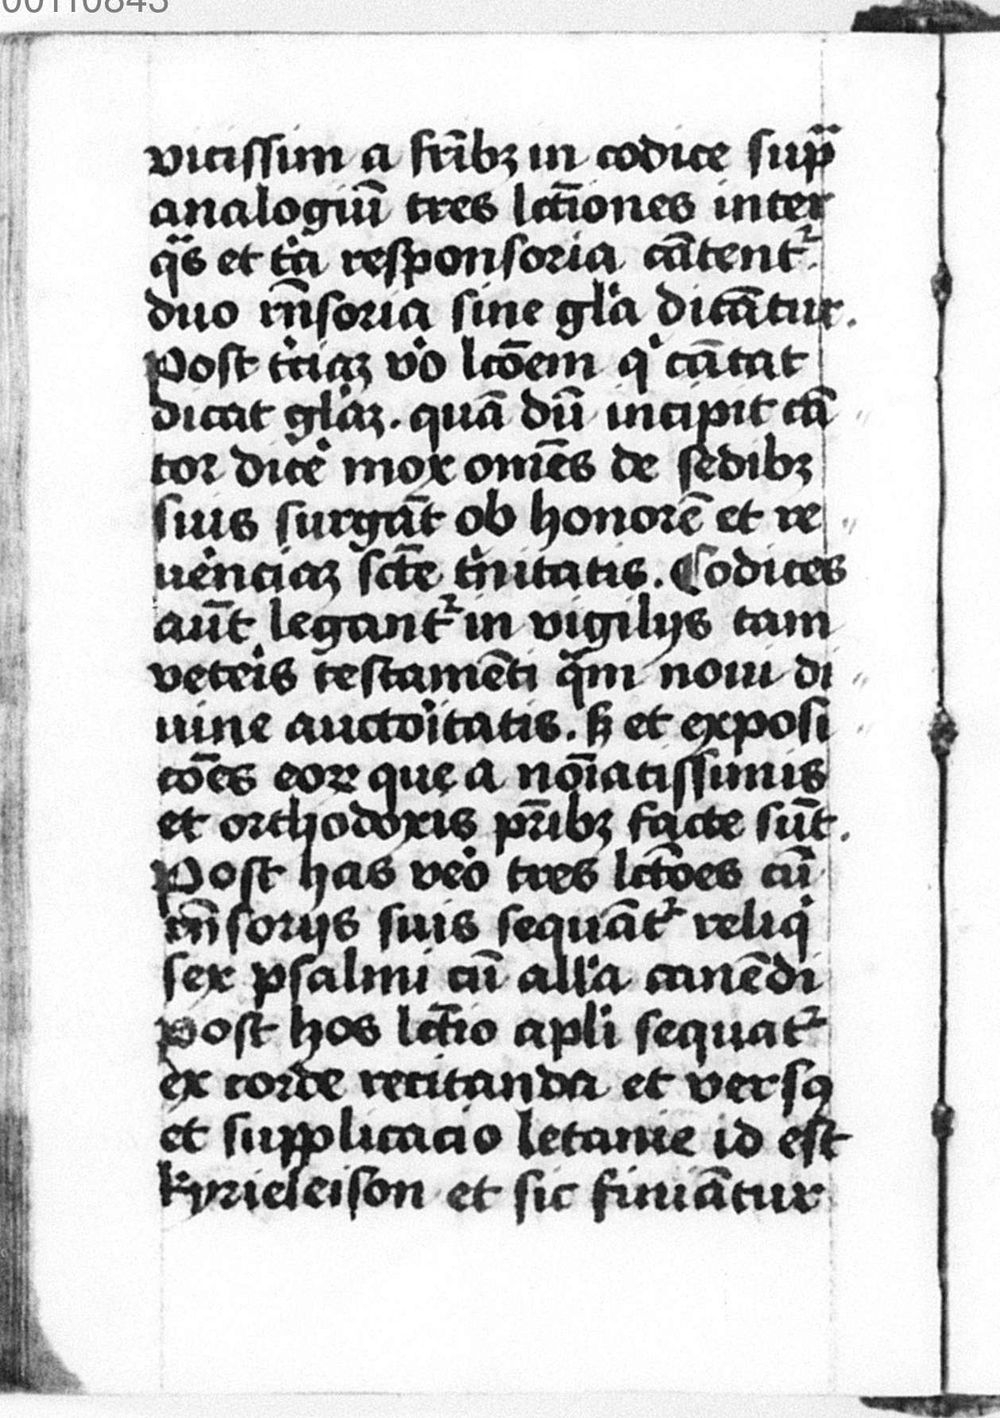 00110843
vicissim a fr̄ibꝫ in codice sup̄
analogiū tres lct̄iones inter
q̄s et tͥa responsoria cātentᷣ.
duo rn̄soria sine gl̓a dicātur.
Post tͥciaꝫ vͦo lcōem qͥ cātat
dicat gl̓aꝫ. quā dū incipit cā
tor dice̓ mox om̄es de sedibꝫ
suis surgāt ob honorē et re
ue̓nciaꝫ sct̄e tͥnitatis. Codices
aūt legantᷣ in vigilijs tam
veteͥs testamēti qͣm noui di
uine auctoͥtatis. sꝫ et exposi
cōes eoꝝ quę a noı̄atissimis
et orthodoxis pr̄ibꝫ facte sūt.
Post has veͦo tres lctōes cū
rn̄sorijs suis sequātᷣ reliqͥ
sex psalmi cū all̓a canēdi
post hos lct̄io apl̓i sequatᷣ
ex corde recitanda et versꝯ
et supplicacio letanie id est
kyrieleison et sic finiātur